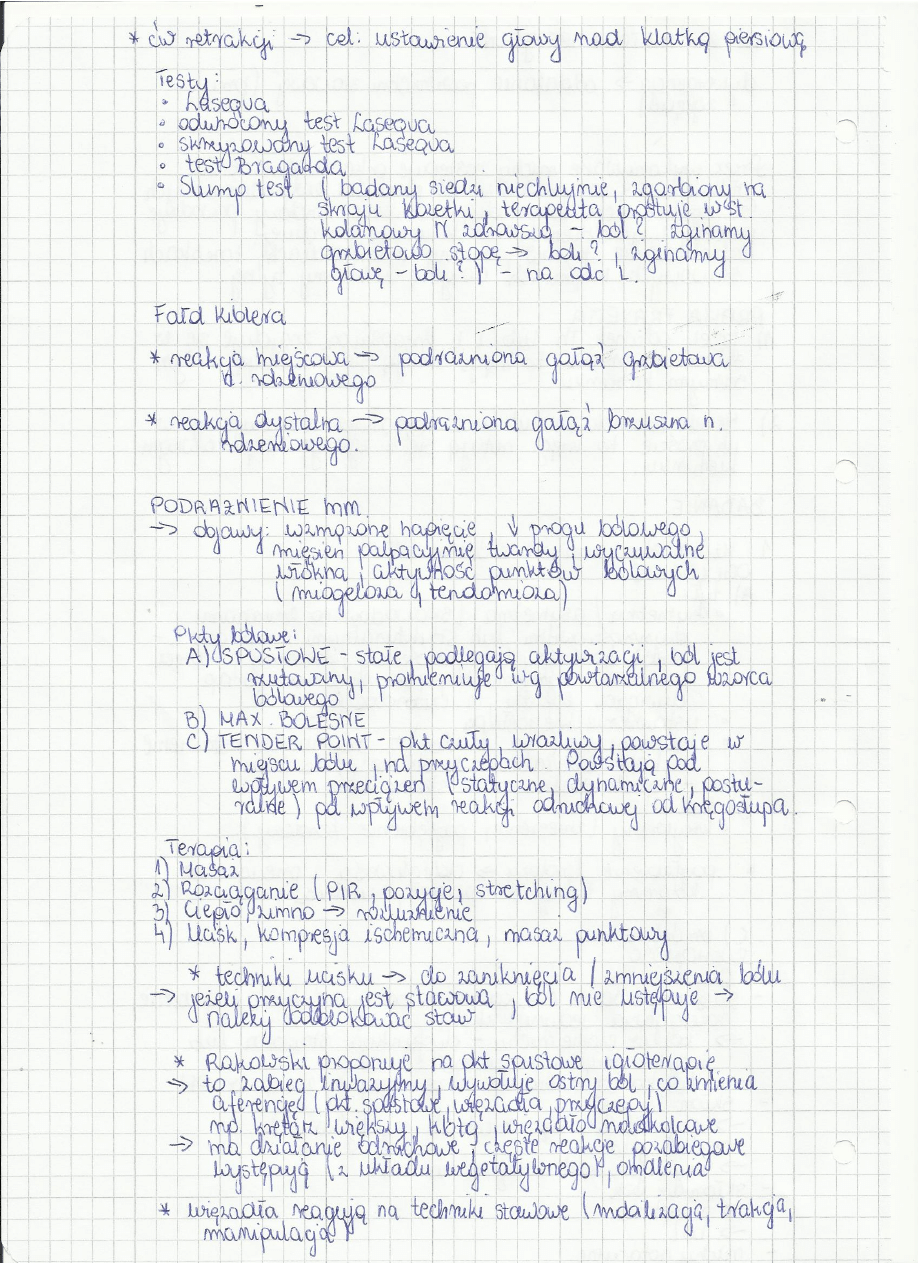 * ćw retrakcji → cel: ustawienie głowy nad klatką piersiową
Testy:
• Laseqva
• odwrócony test Laseqva
• skrzyżowany test Laseqva
• test Bragarda
• Slump test (badany siedzi niechlujnie, zgarbiony na
skraju kozetki, terapeuta prostuje w st.
kolanowy N zdrowszą – ból? zginamy
grzbietowo stopę → boli?, zginamy
głowę – boli?) – na odc L.
Fałd Kiblera
* reakcja miejscowa → podrażniona gałąź grzbietowa
n. rdzeniowego
* reakcja dystalna → podrażniona gałąź brzuszna n.
rdzeniowego.
PODRAŻNIENIE mm.
→ objawy: wzmożone napięcie, ↓ progu bólowego,
mięsień palpacyjnie twardy, wyczuwalne
włókna, aktywność punktów bólowych
(miogeloza, tendomioza)
Pkty bólowe:
A) SPUSTOWE – stałe, podlegają aktywizacji, ból jest
rzutowany, promieniuje wg powtarzalnego wzorca
bólowego
B) MAX. BOLESNE
C) TENDER POINT – pkt czuły, wrażliwy, powstaje w
miejscu bólu, na przyczepach. Powstają pod
wpływem przeciążeń (statyczne, dynamiczne, postu-
ralne) pd wpływem reakcji odruchowej od kręgosłupa.
Terapia:
1) Masaż
2) Rozciąganie (PIR, pozycje, stretching)
3) Ciepło, zimno → rozluźnienie
4) Ucisk, kompresja ischemiczna, masaż punktowy
* techniki ucisku → do zaniknięcia / zmniejszenia bólu
→ jeżeli przyczyna jest stawowa, ból nie ustępuje →
należy odblokować staw
* Rakowski proponuje na pkt spustowe igłoterapię
→ to zabieg inwazyjny, wywołuje ostry ból, co zmienia
aferencję (pkt. spustowe, więzadła, przyczepy)
np. krętarz większy, k. bio., więzadło nadkolcowe
→ ma działanie odruchowe, częste reakcje pozabiegowe
występują (z układu wegetatywnego), omdlenia
* więzadła reagują na techniki stawowe (mobilizacja, trakcja,
manipulacja)